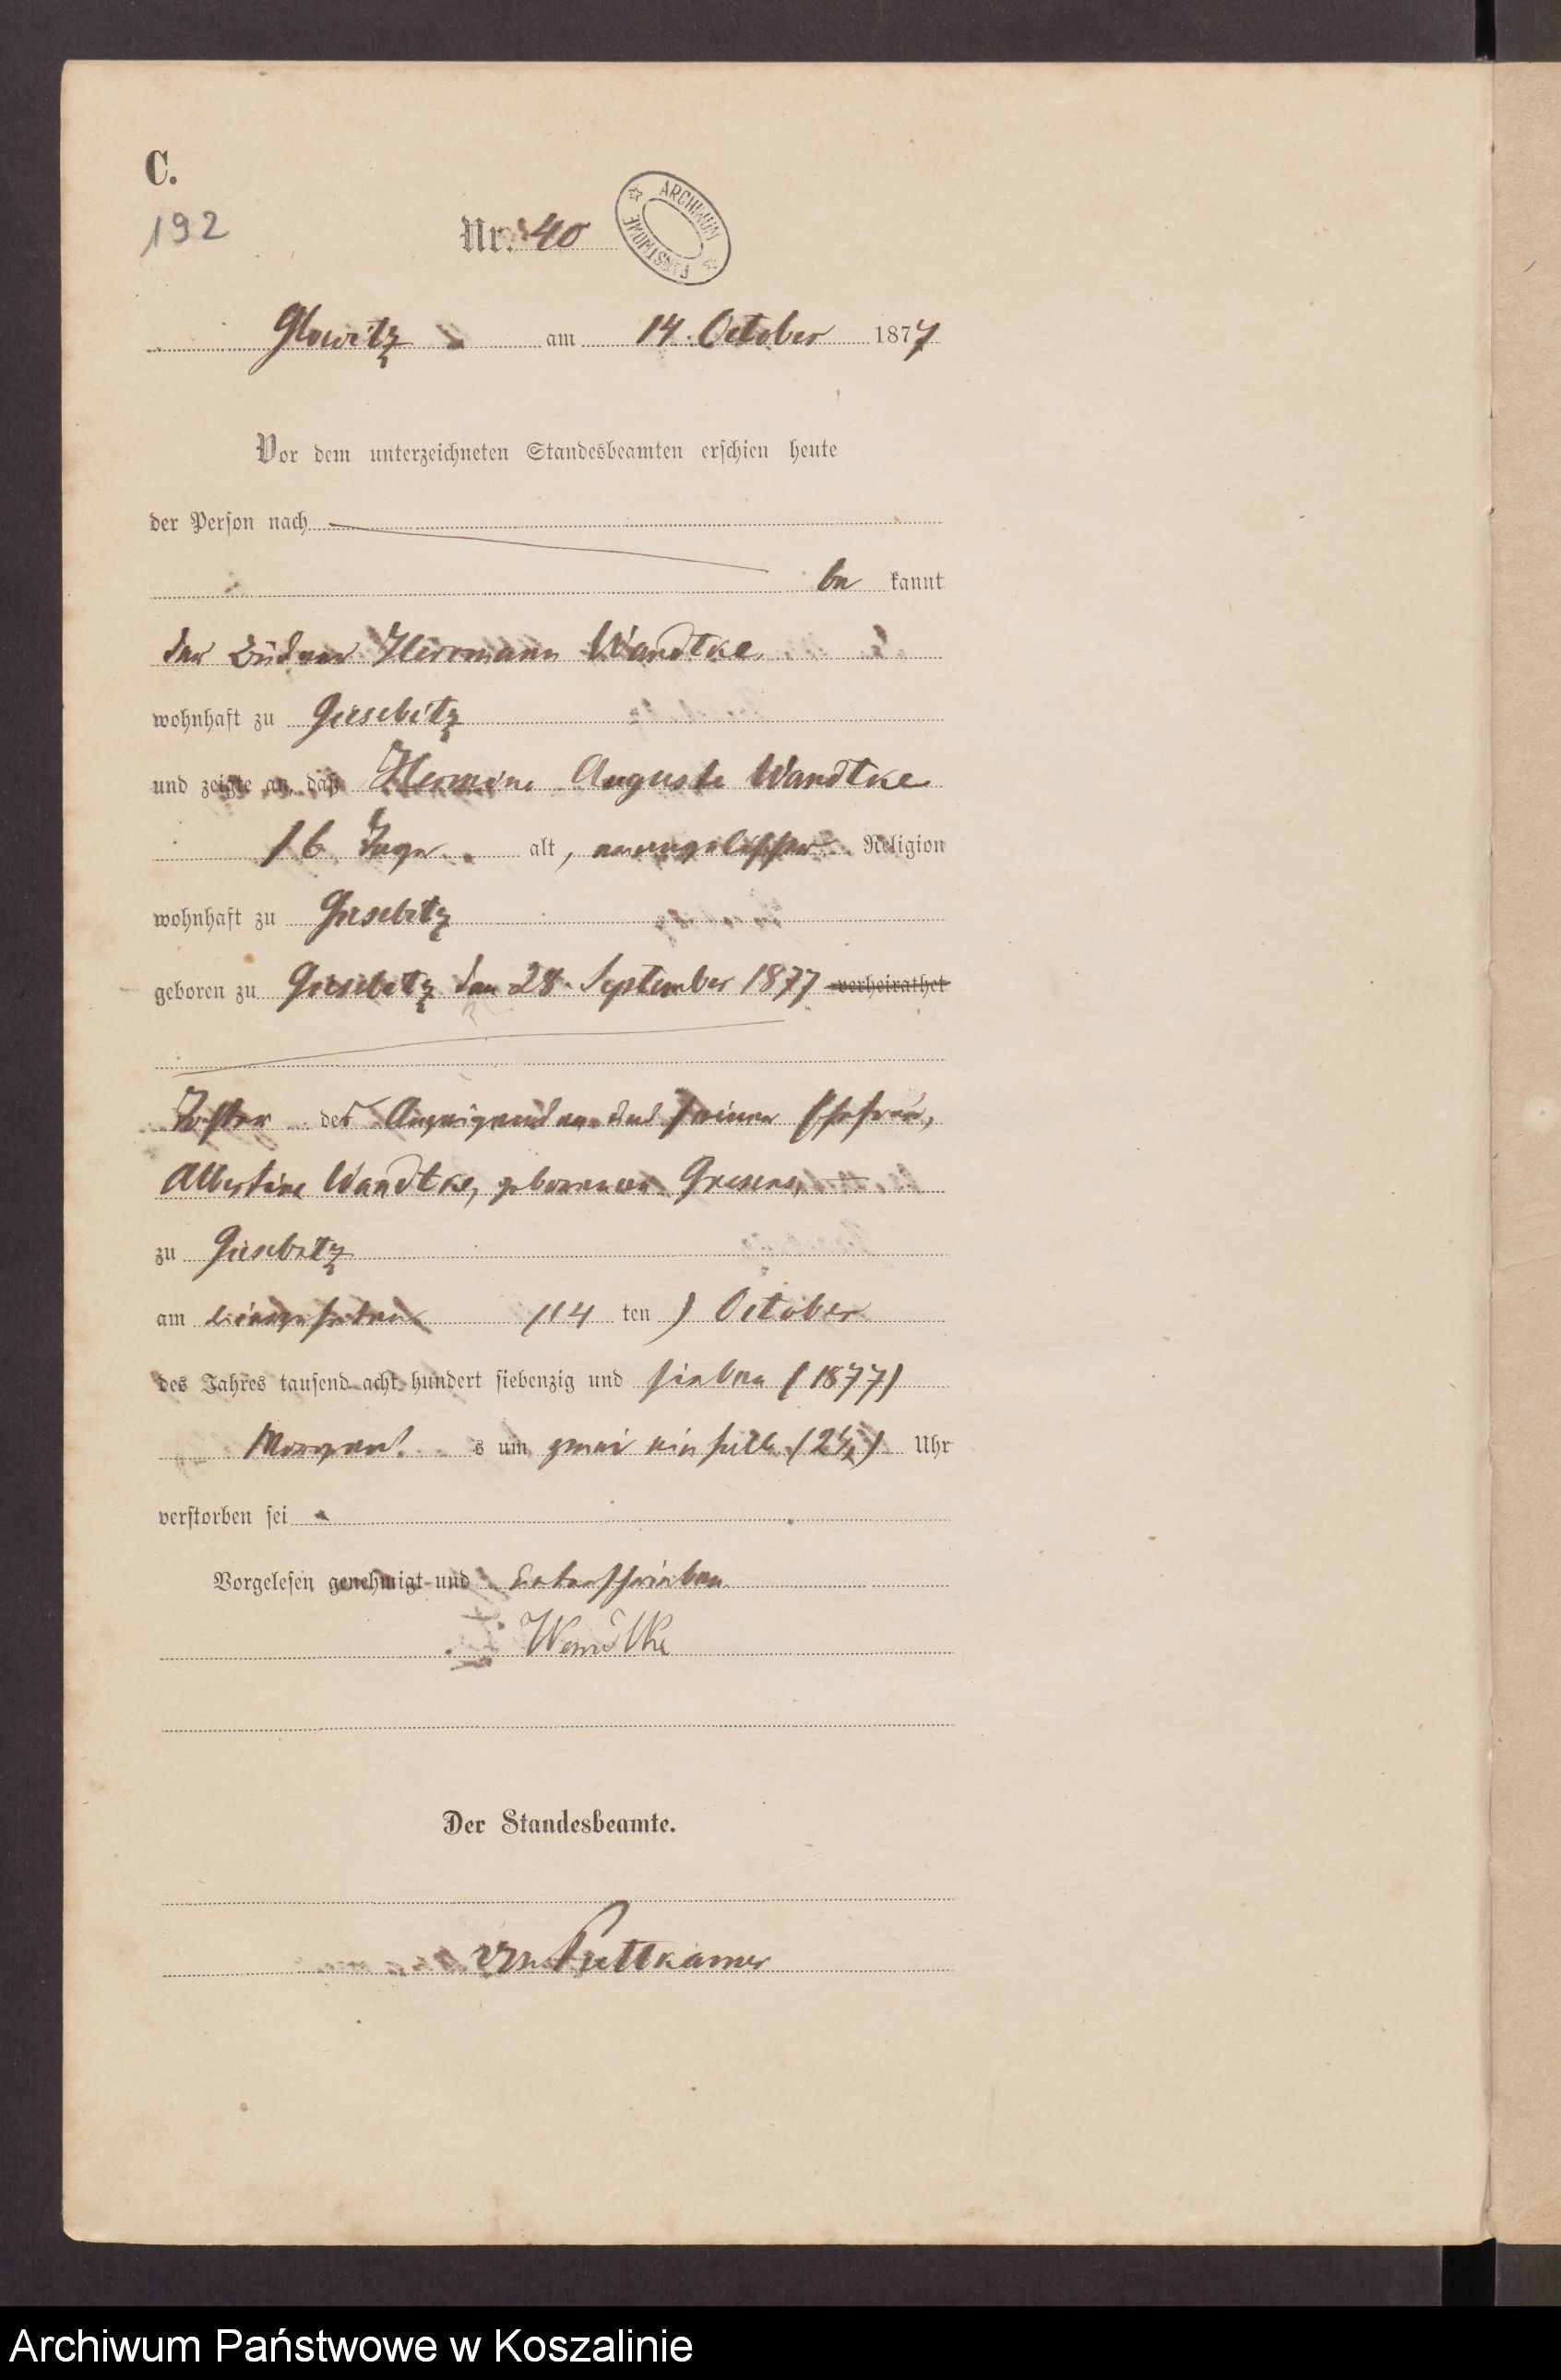 C.
192
Nr. 40
ARCHIWUM PAŃSTWOWE
Glowitz am 14. October 1877
Vor dem unterzeichneten Standesbeamten erschien heute
der Person nach
be kannt
der Büdner Herrmann Wandtke
wohnhaft zu Giesebitz
und zeigte an, daß Hermine Auguste Wandtke
16 Tage alt, evangelischer Religion
wohnhaft zu Giesebitz
geboren zu Giesebitz den 28. September 1877 verheirathet
Tochter des Anzeigenden und seiner Ehefrau,
Albertine Wandtke, geborenen
zu Giesebitz
am vierzehnten (14 ten) October
des Jahres tausend acht hundert siebenzig und sieben (1877)
Morgens um zwei ein halb (2½) Uhr
verstorben sei
Vorgelesen genehmigt und unterschrieben
Wandtke
Der Standesbeamte.
von Puttkamer
Archiwum Państwowe w Koszalinie